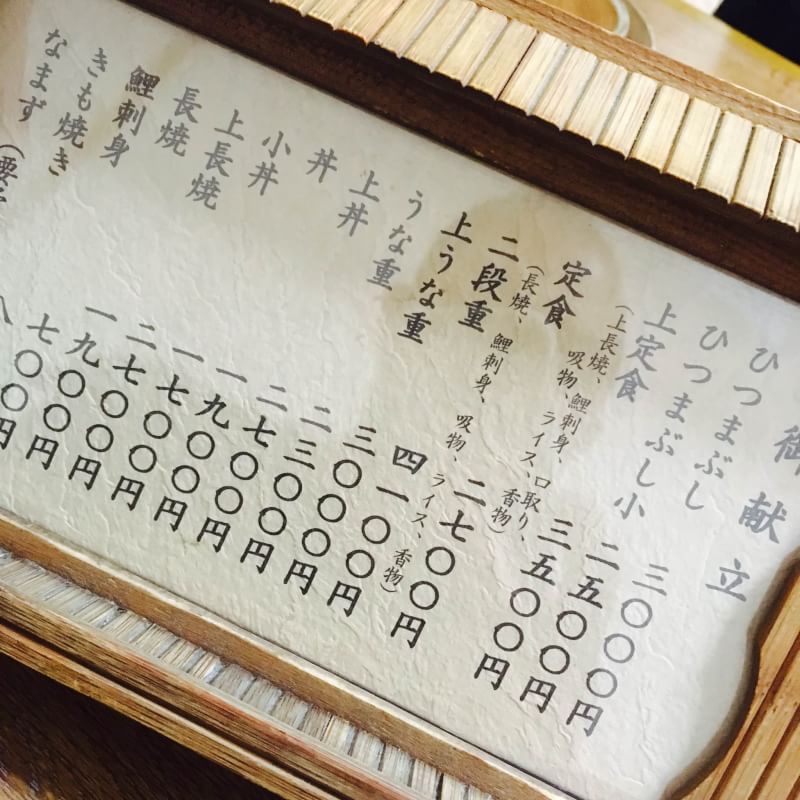 御献立
ひつまぶし 三〇〇〇円
ひつまぶし小 二五〇〇円
上定食 三五〇〇円
(上長焼、鯉刺身、口取り、
吸物、ライス、香物)
定食 二七〇〇円
(長焼、鯉刺身、吸物、ライス、香物)
二段重 四一〇〇円
上うな重 三〇〇〇円
うな重 二三〇〇円
上丼 二七〇〇円
丼 一九〇〇円
小丼 一七〇〇円
上長焼 二七〇〇円
長焼 一九〇〇円
鯉刺身 七〇〇円
きも焼き
なまず